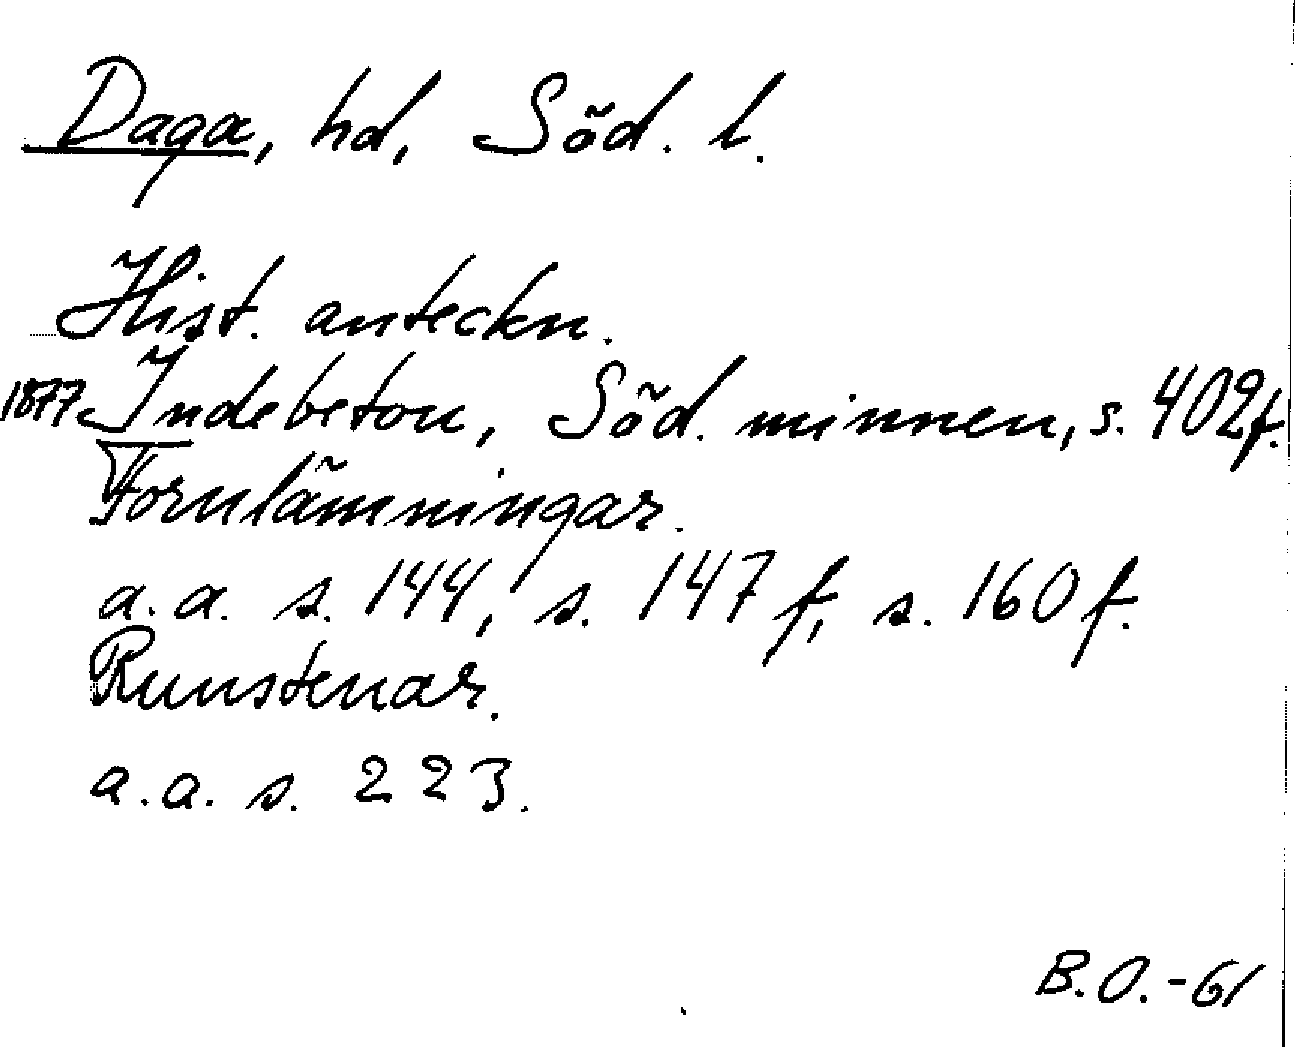 Daga, hd, Söd. l.
Hist. anteckn.
1877 Indebetou, Söd. minnen, s. 402f.
Fornlämningar.
a.a. s. 144, s. 147 f, s. 160 f.
Runstenar.
a.a. s. 223.
B.O.-61